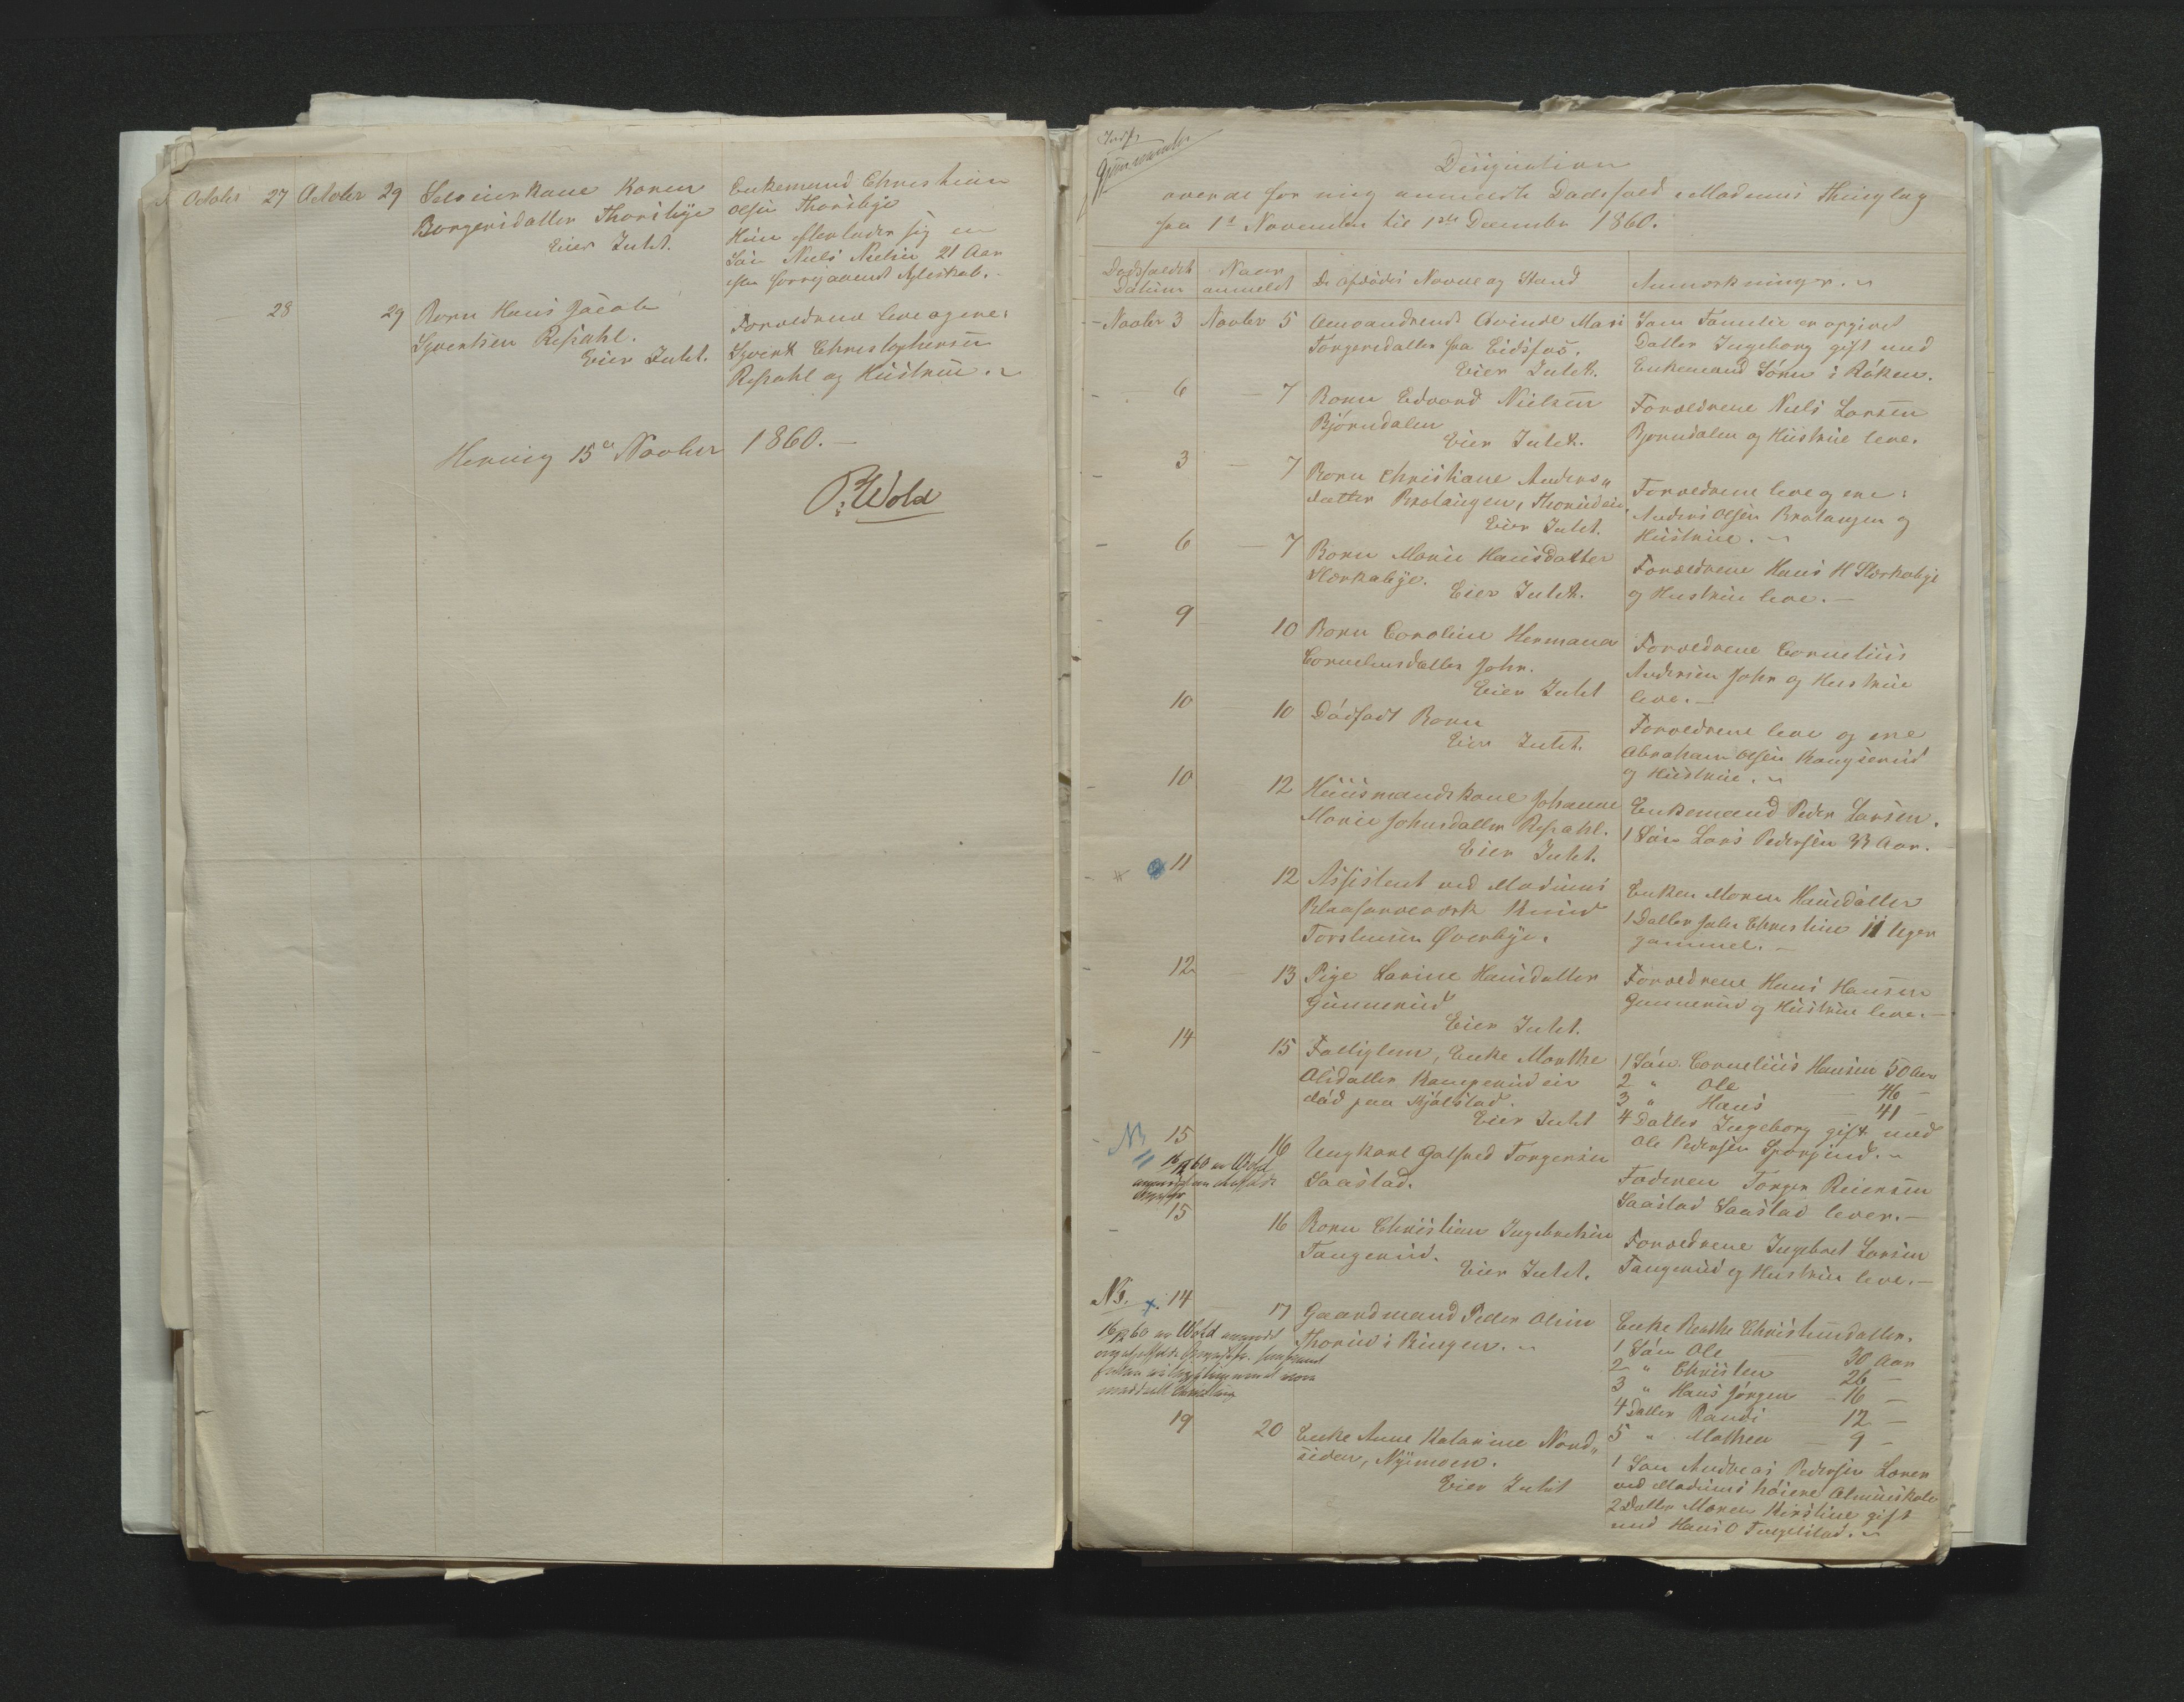 October 27 October 29 Selveierkone Karen
Borgersdatter Thorsbye
Eier Intet.
Enkemand Christian
Olsen Thorsbye
Hun efterlader sig en
Søn Niels Nielsen 21 Aar
28 29 Barn Hans Jacob
Syvertsen
Eier Intet.
Forældrene leve og ere:
Syvert Christophersen
og Hustrue.
Herwig 15de Novber 1860.
P. Wold
Designation
over de for mig anmeldte Dødsfald i Modums Thinglag
fra 1ste November til 1ste December 1860.
Dødsfaldets
Datum
Naar
anmeldt
De Afdødes Navne og Stand
Anmærkninger.
Novber 3 Novber 5 Omvandrende Qvinde Mari
Torgersdatter fra Eidsfos.
Eier Intet.
Som Familie er opgivet
Datter Ingeborg gift med
Enkemand Søren i Røken.
6 7 Barn Edvard Nielsen
Bjørndalen
Eier Intet.
Forældrene Niels Larsen
Bjørndalen og Hustrue leve.
3 7 Barn Christiane Anders„
datter Bratangen,
Eier Intet.
Forældrene leve og ere:
Anders Olsen Bratangen og
Hustrue.
6 7 Barn Marie Hansdatter
Stærkebye.
Eier Intet.
Forældrene Hans H Stærkebye
og Hustrue leve.
9 10 Barn Caroline Hermana
Corneliusdatter John.
Eier Intet
Forældrene Cornelius
Andersen John og Hustrue
leve.
10 10 Dødfødt Barn
Eier Intet.
Forældrene leve og ere
Abraham Olsen
og Hustrue.
10 12 Huusmandskone Johanne
Marie Johnsdatter
Eier Intet.
Enkemand Peder Larsen.
1 Søn Lars Pedersen 33 Aar.
11 12 Assistent ved Modums
Blaafarveværk Knud
Torstensen Øverbye.
Enken Maren Hansdatter
1 Datter Julie Christine 11 Uger
gammel.
12 13 Pige Larine Hansdatter
Gunnerud
Eier Intet.
Forældrene Hans Hansen
Gunnerud og Hustrue leve.
14 15 Fattiglem, Enke Marthe
Olsdatter
død paa
Eier Intet
1 Søn Cornelius Hansen 50 Aar
2 " Ole — 46 —
3 " Hans — 41 —
4 Datter Ingeborg gift med
Ole Pedersen
15 16 Ungkarl Galfred Torgersen
Saastad.
Faderen Torger Reiersen
Saastad Saastad lever.
15 16 Barn Christian Ingebretsen
Tangerud.
Eier Intet.
Forældrene Ingebret Larsen
Tangerud og Hustrue leve.
NB. 14 17 Gaardmand Peder Olsen
Thorud i Bingen.
Enke Berthe Christensdatter.
1 Søn Ole 30 Aar
2 " Christen 26 —
3 " Hans Jørgen — 16 —
4 Datter Randi 12 —
5 " Mathea — 9 —
19 20 Enke Anne Katarine Nord„
siden, Nymoen.
Eier Intet
1 Søn Andreas Pedersen Lærer
ved Modums høiere Almueskole
2 Datter Maren Kirstine gift
med Hans O